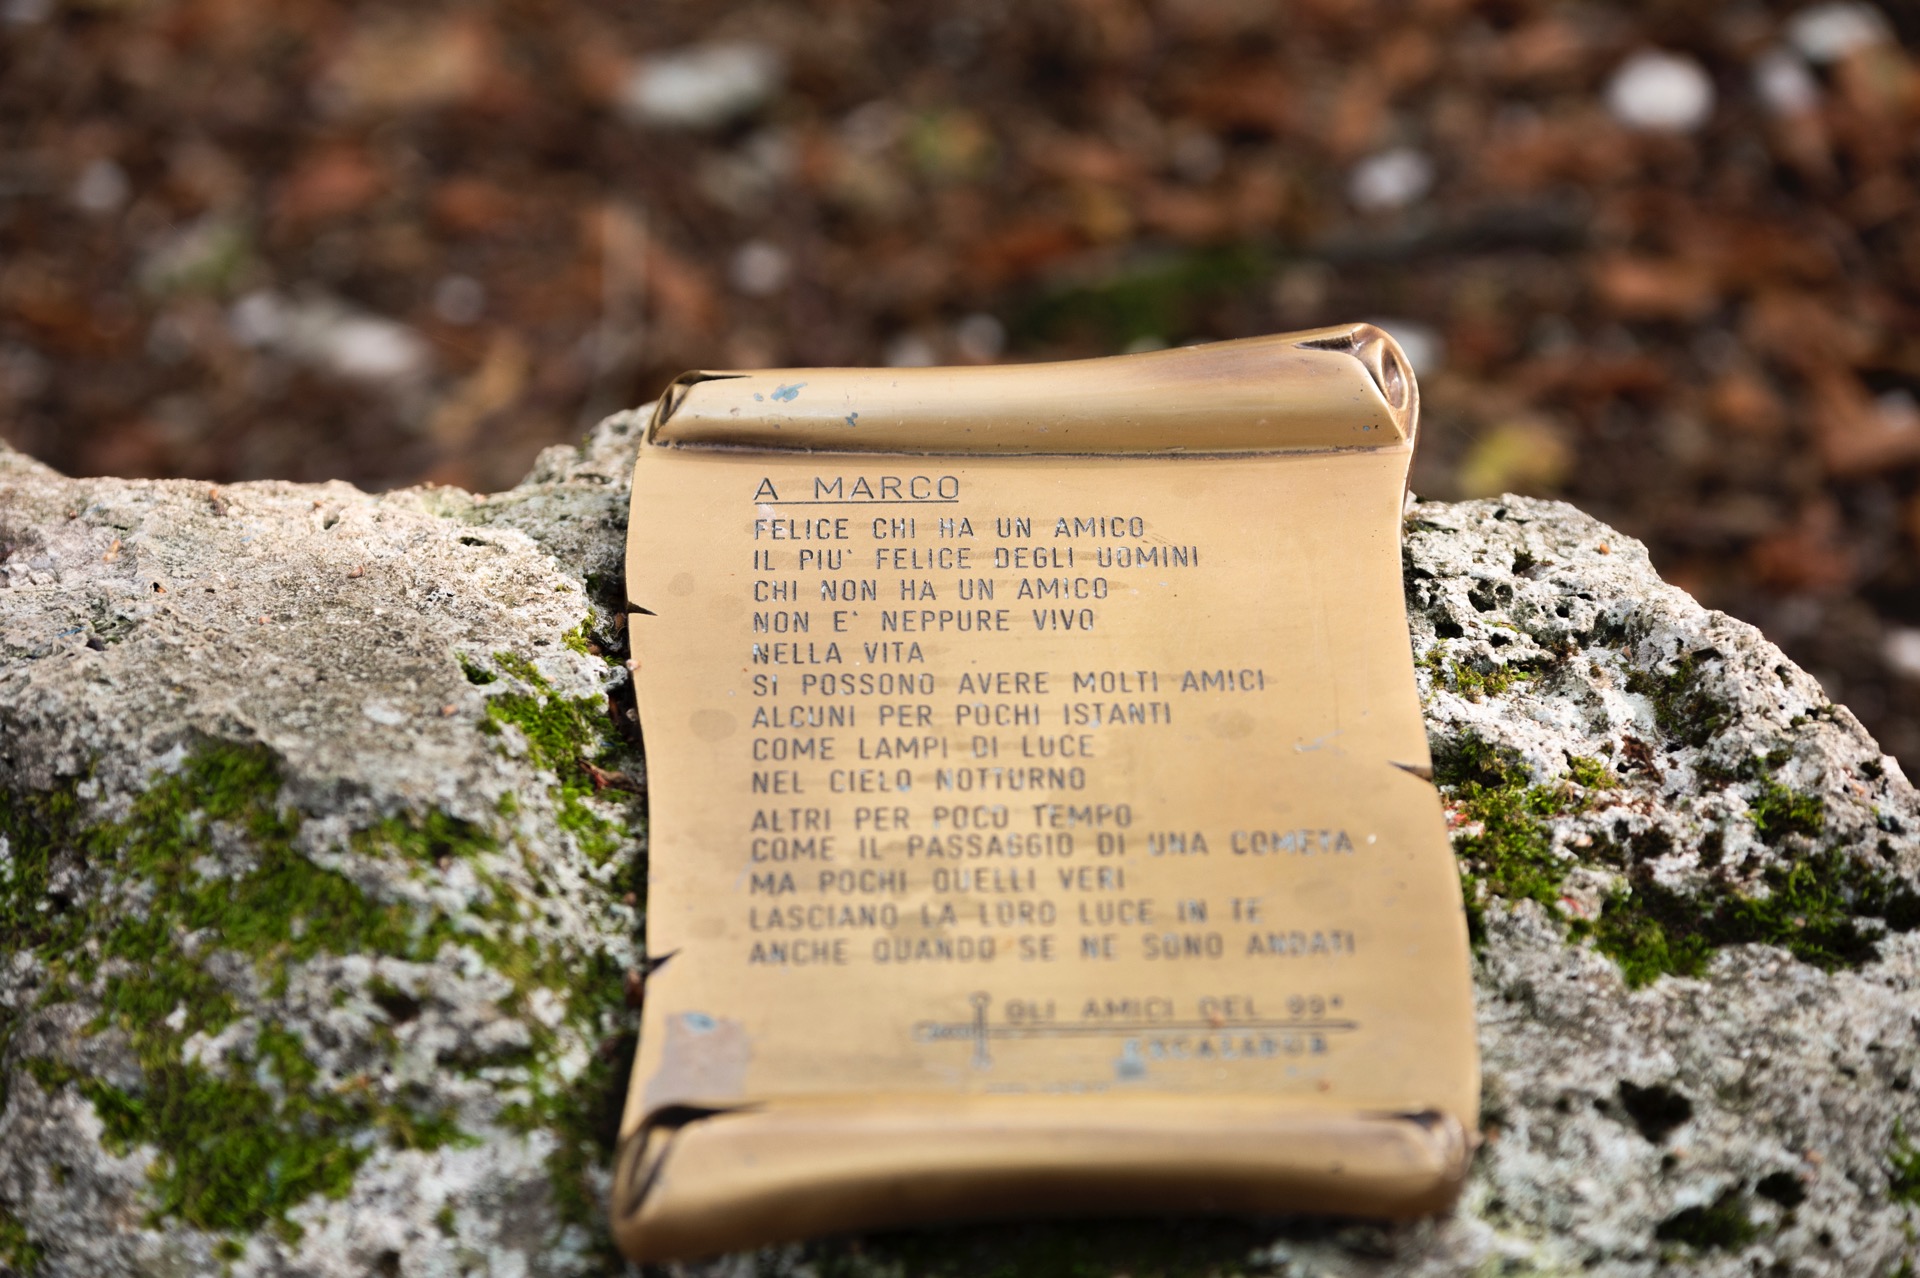 A MARCO
FELICE CHI HA UN AMICO
IL PIU' FELICE DEGLI UOMINI
CHI NON HA UN AMICO
NON E' NEPPURE VIVO
NELLA VITA
SI POSSONO AVERE MOLTI AMICI
ALCUNI PER POCHI ISTANTI
COME LAMPI DI LUCE
NEL CIELO NOTTURNO
ALTRI PER POCO TEMPO
COME IL PASSAGGIO DI UNA COMETA
MA POCHI QUELLI VERI
LASCIANO LA LORO LUCE IN TE
ANCHE QUANDO SE NE SONO ANDATI
GLI AMICI DEL 99°
EXCALIBUR